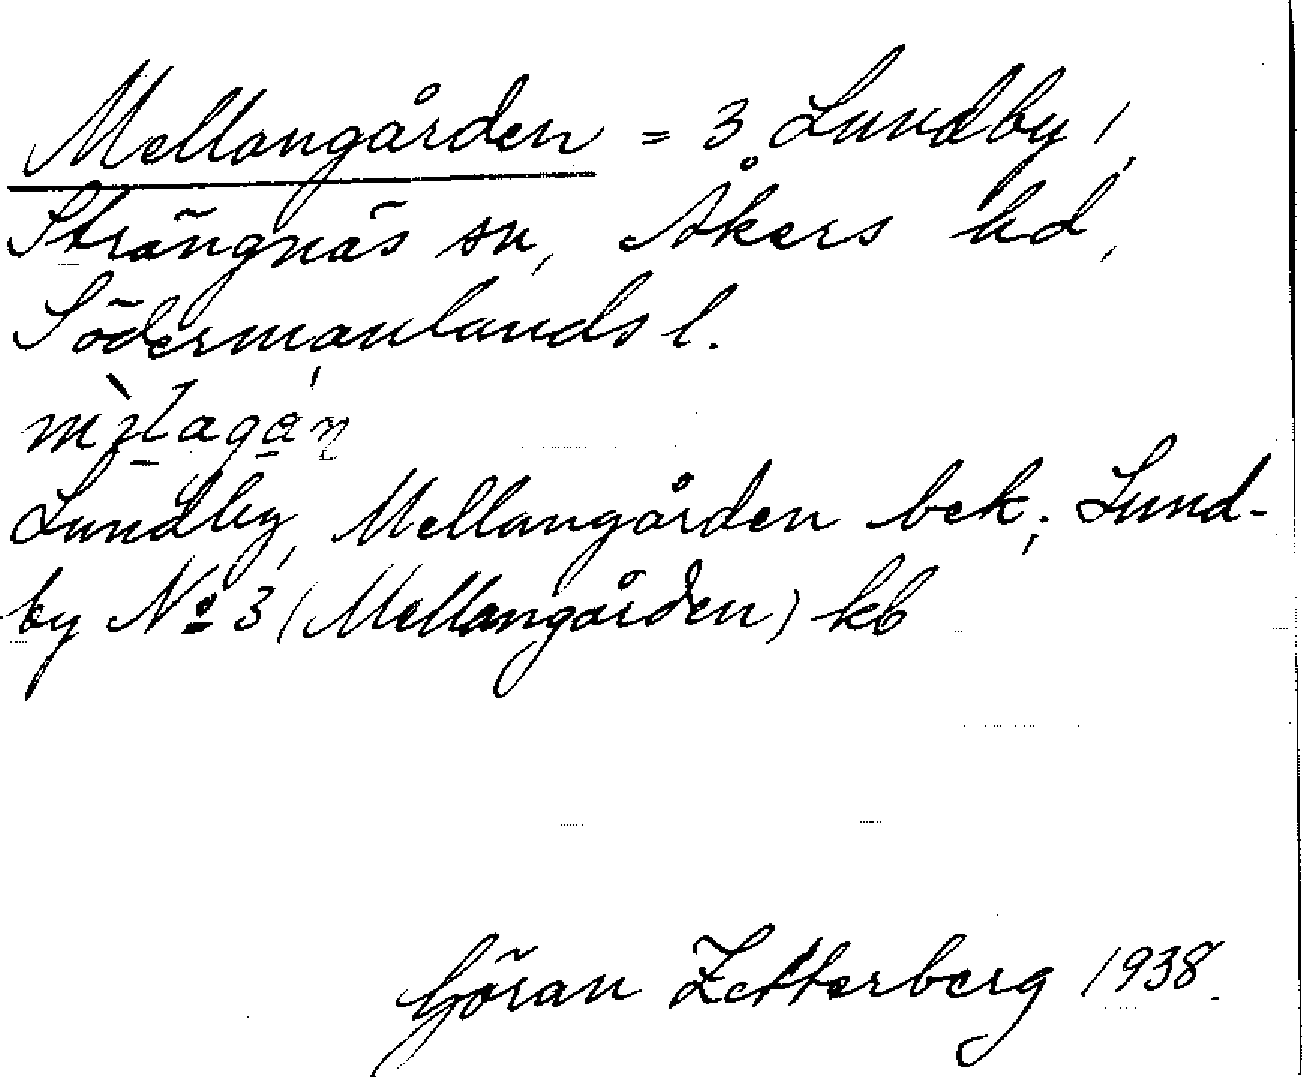 Mellangården = 3 Lundby 1,
Strängnäs sn, Åkers hd,
Södermanlands l.
Lundby, Mellangården bek.; Lund-
by No 3 (Mellangården) kb
Göran Zetterberg 1938.